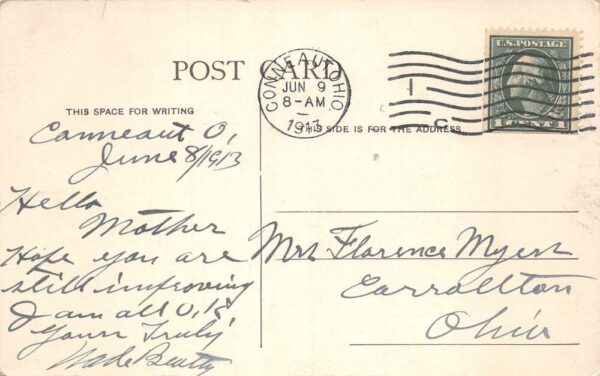 POST CARD
CONNEAUT, OHIO
JUN 9
8-AM
1913
U.S. POSTAGE
1 CENT 1
THIS SPACE FOR WRITING
THIS SIDE IS FOR THE ADDRESS
Conneaut O,
June 8/1913
Hello
Mother
Hope you are
still improving
I am all O.K
Yours Truly
Wade Beatty
Mrs Florence Myers
Carrollton
Ohio